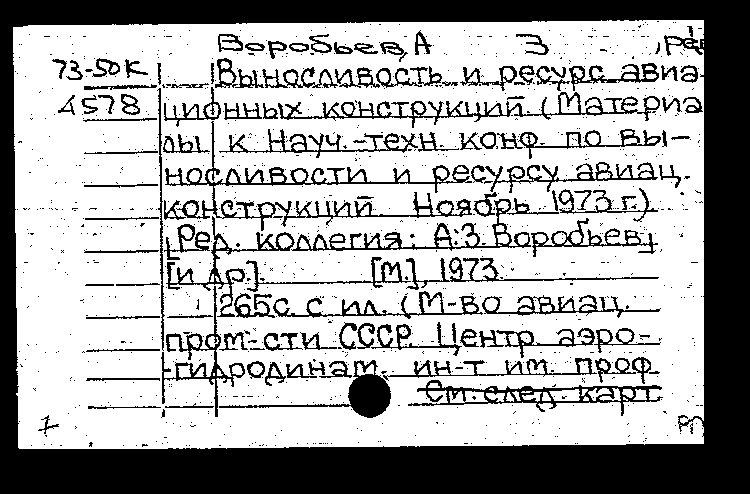 Воробьев, А З , ред
73-50к Выносливость и ресурс авиа-
4578 ционных конструкций (Материа
лы к Науч.-техн. конф. по вы-
носливости и ресурсу авиац.
конструкций Ноябрь 1973 г.)
[Ред. коллегия: А.З. Воробьев
[и др.]. [М.], 1973
265с. с ил. (М-во авиац.
пром-сти СССР. Центр. аэро-
-гидродинам. ин-т им. проф
См. след. карт.
1 РП